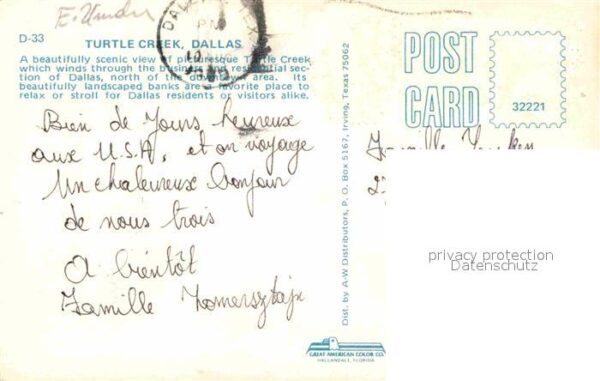 D-33
TURTLE CREEK, DALLAS
A beautifully scenic view of picturesque Turtle Creek
which winds through the business and residential sec-
tion of Dallas, north of the downtown area. Its
beautifully landscaped banks are a favorite place to
relax or stroll for Dallas residents or visitors alike.
Bien de jours heureux
aux U.S.A. et on voyage
Un chaleureux bonjour
de nous trois
A bientôt
Famille
Dist. by A-W Distributors, P. O. Box 5167, Irving, Texas 75062
GREAT AMERICAN COLOR CO.
HALLANDALE, FLORIDA
POST
CARD
32221
Famille
privacy protection
Datenschutz